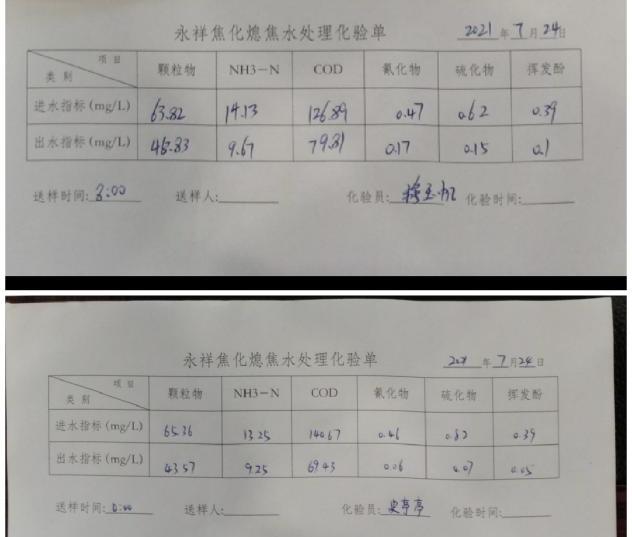 永祥焦化熄焦水处理化验单 2021年7月24日
项目 类别 颗粒物 NH3-N COD 氰化物 硫化物 挥发酚
进水指标(mg/L) 63.82 14.13 126.89 0.47 0.62 0.39
出水指标(mg/L) 46.83 9.67 79.81 0.17 0.15 0.1
送样时间:8:00 送样人: 化验员: 化验时间:
永祥焦化熄焦水处理化验单 年7月24日
项目 类别 颗粒物 NH3-N COD 氰化物 硫化物 挥发酚
进水指标(mg/L) 65.36 13.25 140.67 0.46 0.82 0.39
出水指标(mg/L) 43.57 9.25 69.43 0.06 0.07 0.05
送样时间: 送样人: 化验员:史亭亭 化验时间: